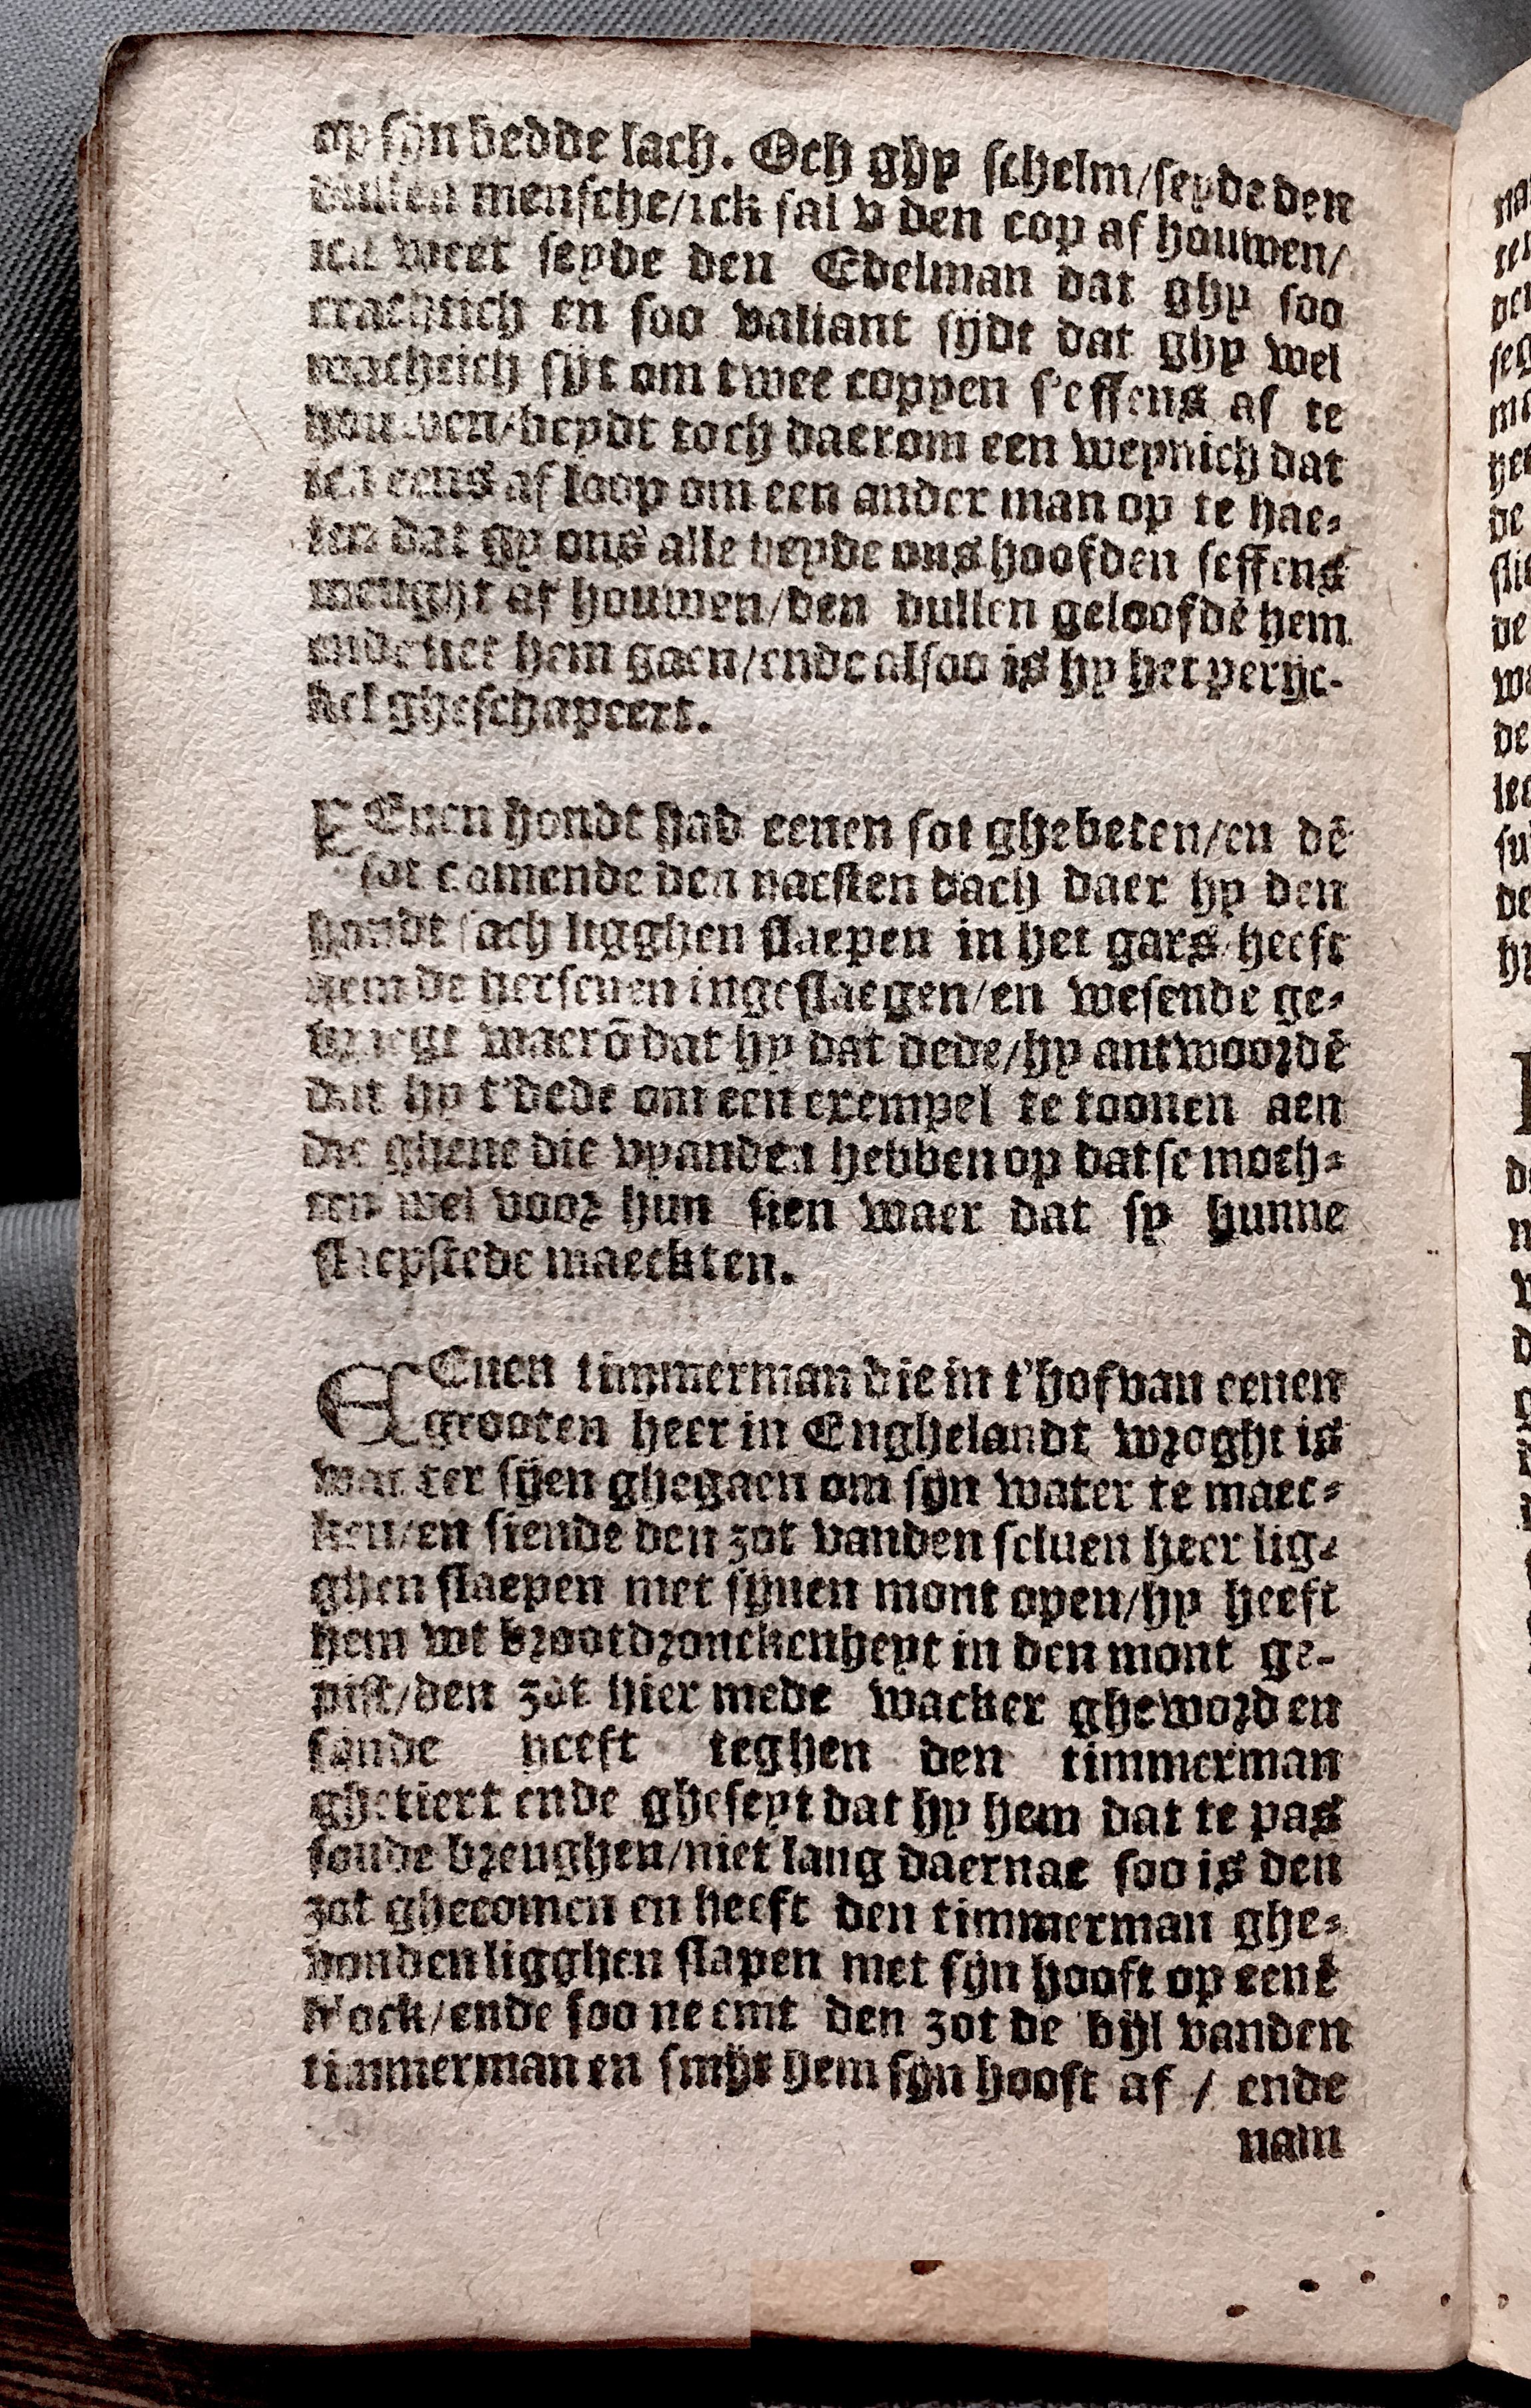 op sijn bedde lach. Och ghy schelm/seyde den
dullen mensche/ick sal v den cop af houwen/
ick weet seyde den Edelman dat ghy soo
crachtich en soo valiant sijdt dat ghy wel
machtich sijt om twee coppen s'effens af te
houwen/beydt toch daerom een weynich dat
ick eens af loop om een ander man op te hae-
len dat gy ons alle beyde ons hoofden seffens
meught af houwen/den dullen geloofdē hem
ende liet hem gaen/ende alsoo is hy het peryc-
kel gheschapeert.
EEnen hondt had eenen sot ghebeten/en dē
sot comende den naesten dach daer hy den
hondt sach ligghen slaepen in het gars heeft
hem de hersenen ingeslaegen/en wesende ge-
vraegt waerō dat hy dat dede/hy antwoordē
dat hy t'dede om een exempel te toonen aen
die ghene die vyanden hebben op datse moch-
ten wel voor hun sien waer dat sy hunne
slaepstede maeckten.
EEnen timmerman die in t'hof van eenen
grooten heer in Enghelandt wroght is
wat ter sijen ghegaen om sijn water te maec-
ken/en siende den zot vanden seluen heer lig-
ghen slaepen met sijnen mont open/hy heeft
hem wt brootdronckenheyt in den mont ge-
pist/den zot hier mede wacker gheworden
sijnde heeft teghen den timmerman
ghetiert ende gheseyt dat hy hem dat te pas
soude brenghen/niet lang daernae soo is den
zot ghecomen en heeft den timmerman ghe-
vonden ligghen slapen met sijn hooft op eenē
block/ende soo neemt den zot de bijl vanden
timmerman en smijt hem sijn hooft af / ende
nam